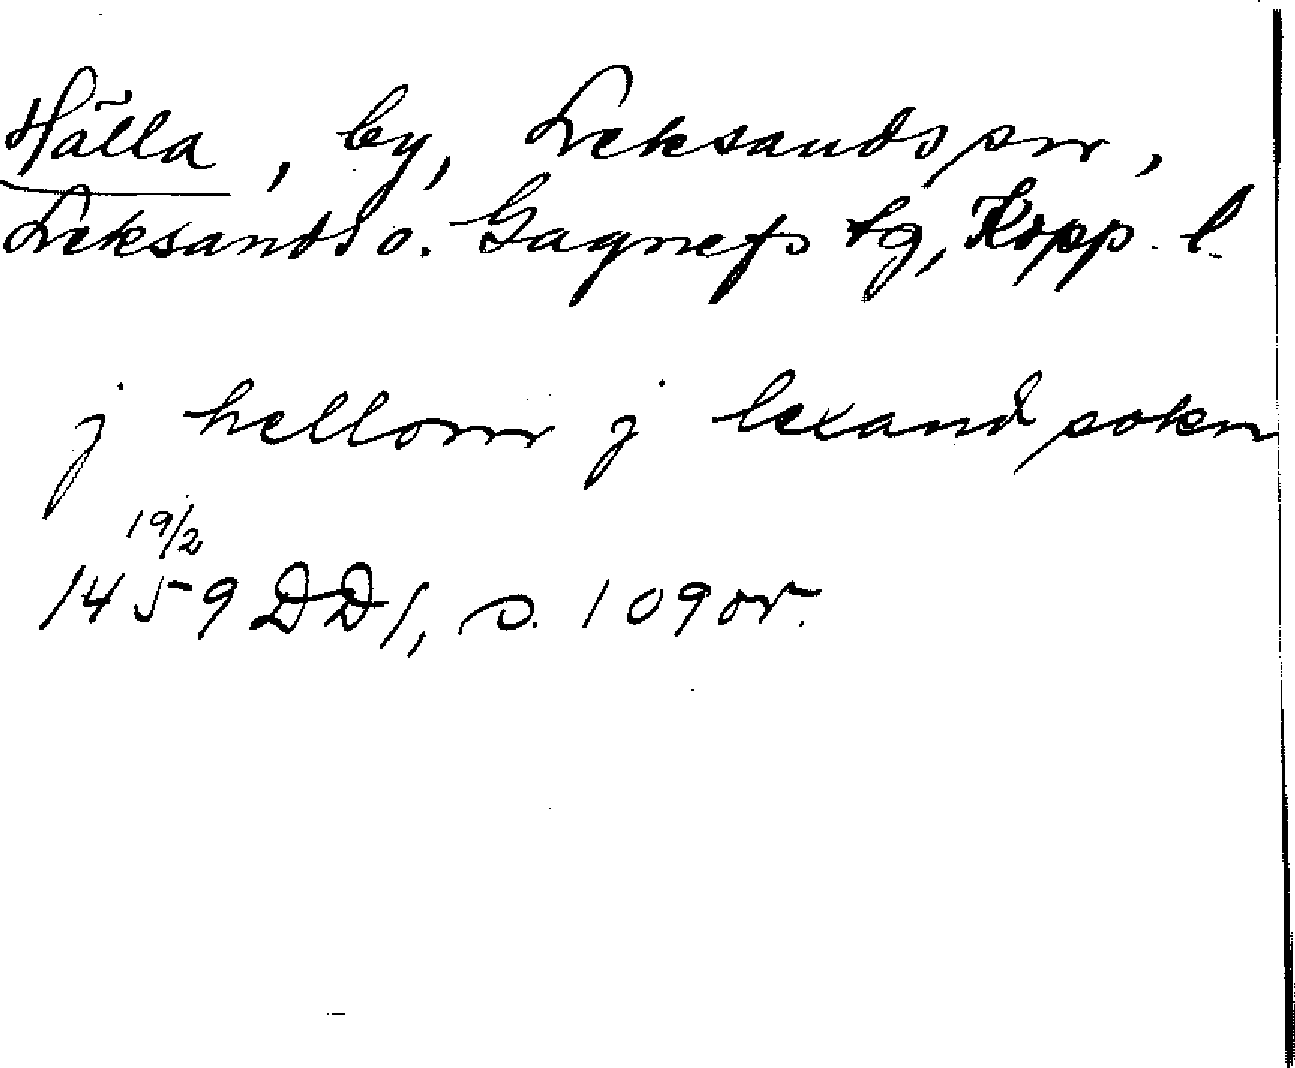 Hälla, by, Leksands sn,
Leksands o. Gagnefs tg, Kopp. l.
j hellom j lexand sokn
19/2
1459 DD1, s. 109 or.